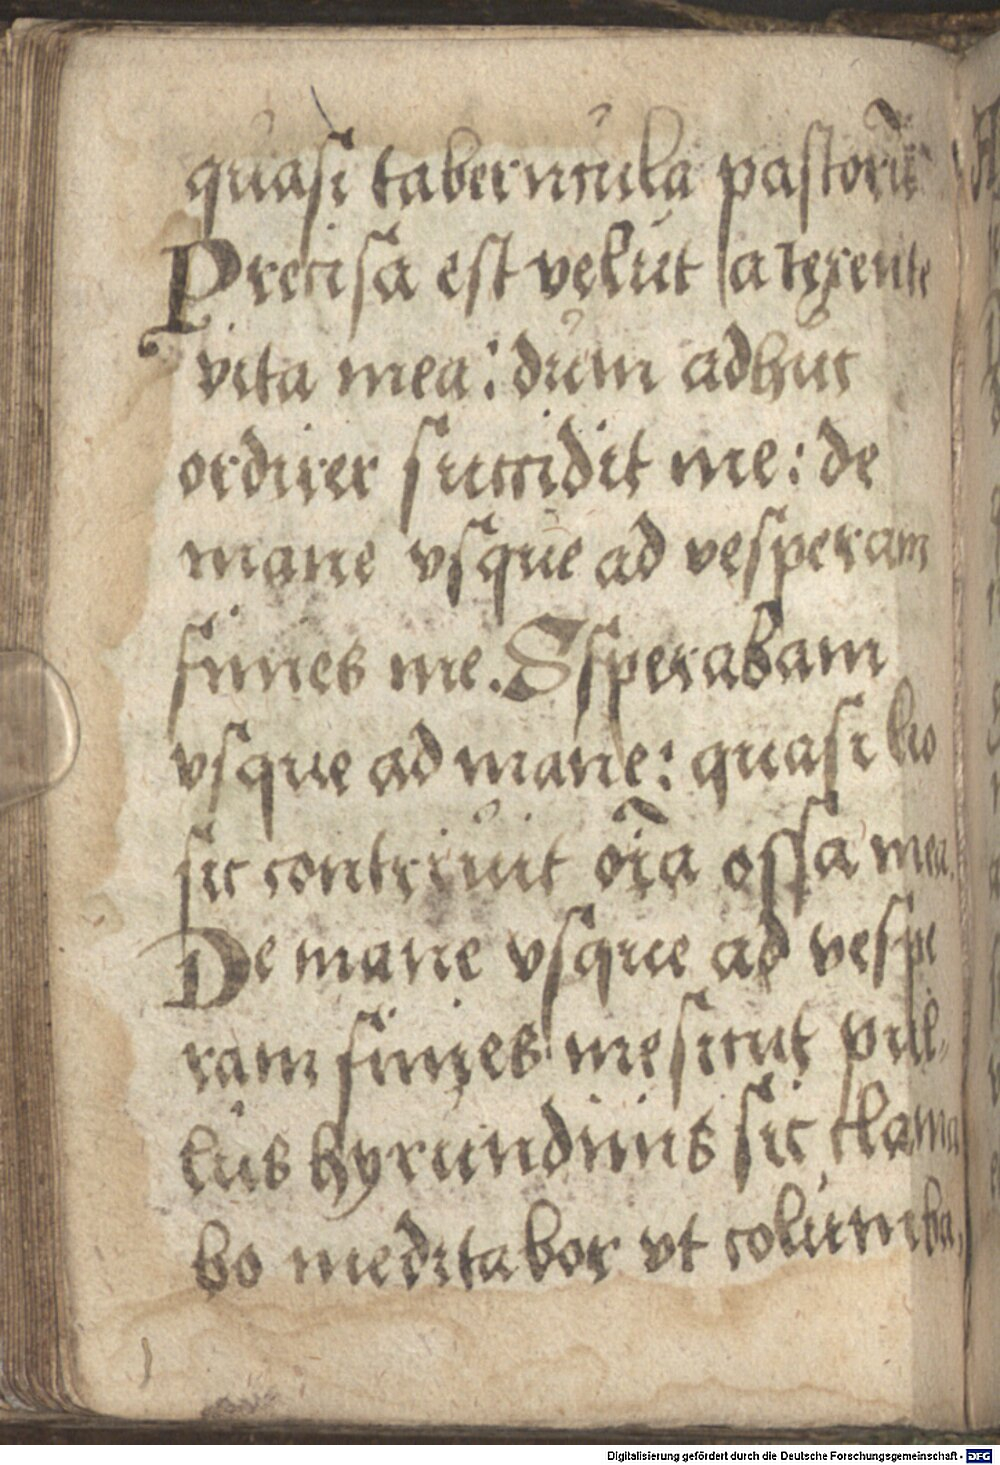 quasi tabernicula pastorũ
Precisa est velut a texente
vita mea: dum adhuc
ordirer succidit me: de
mane vsque ad vesperam
finies me. Ssperabam
vsque ad mane: quasi leo
sic contriuit oĩa ossa mea.
De mane vsque ad vespe
ram finies me sicut pul-
lus hyrundinis sic clama
bo meditabor vt columba,
Digitalisierung gefördert durch die Deutsche Forschungsgemeinschaft - DFG